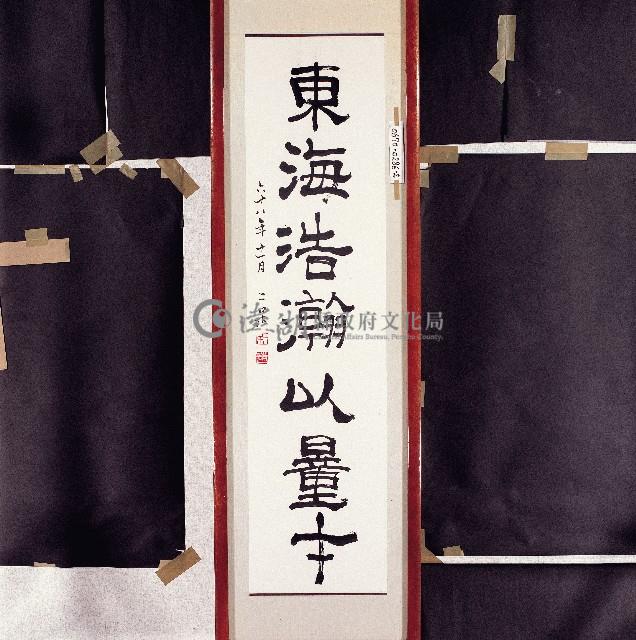 東海浩瀚以量才
六十八年十一月 二呆
澎湖縣政府文化局
Affairs Bureau, Penghu County.